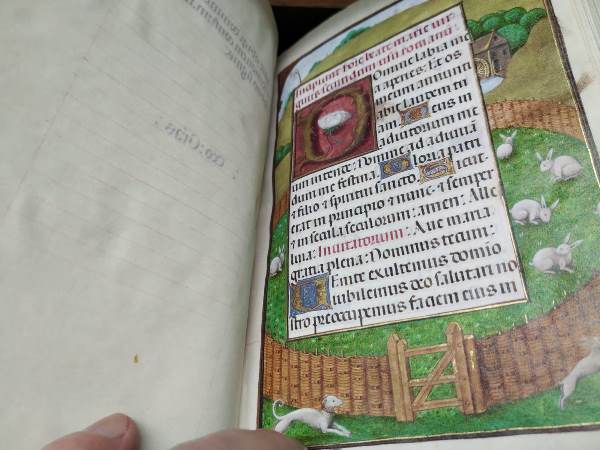 Incipiunt hore beate marie vir
ginis secundum usũ romanũ:
Domine labia me
a aperies: Et os
meum annunti
abit laudem tu
am Deus in
adiutorium me
um intende: Domine ad adiuuã
dum me festina: Gloria patri
et filio et spiritui sancto: Sicut
erat in principio et nunc et semper
et in secula seculorum: amen: Alle
luia: Inuitatorium: Aue maria
gratia plena: Dominus tecum:
Venite exultemus domino
iubilemus deo salutari no
stro preoccupemus faciem eius in